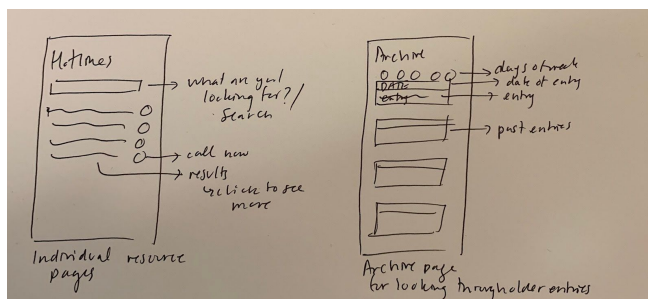 Hotlines
what are you
looking for?/
Search
call now
results
click to see
more
Individual resource
pages
Archive
days of week
DATE
date of entry
entry
entry
past entries
Archive page
for looking through older entries